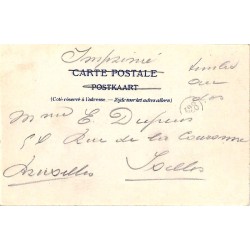 Imprimé
timbre
au
dos
CARTE POSTALE
POSTKAART
(Côté réservé à l'adresse. — Zijde voor het adres alleen.)
Mme E. Dupuis
54 Rue de la Couronne
Bruxelles Ixelles